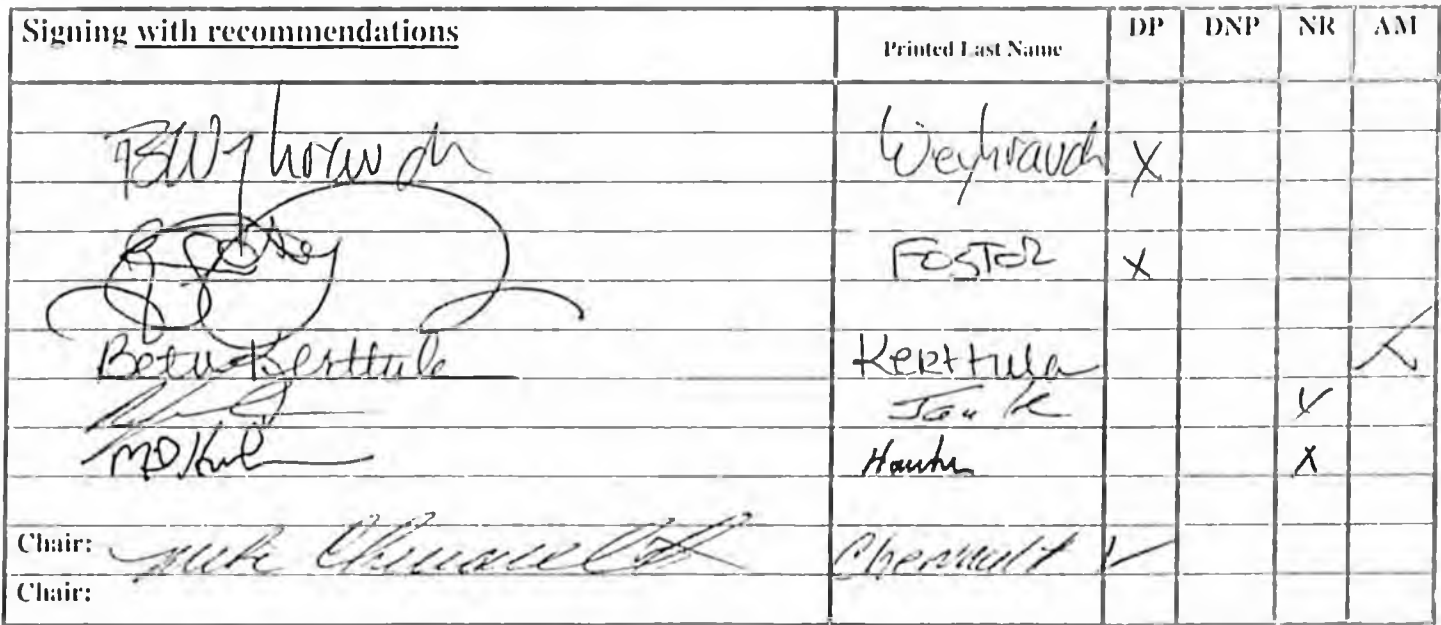 Signing with recommendations Printed Last Name DP DNP NR AM
BWyhrauch Weyhrauch X
Foster X
Beth Kerttula Kerttula X
V
Hawker X
Chair: Mike Chenault Chenault V
Chair: